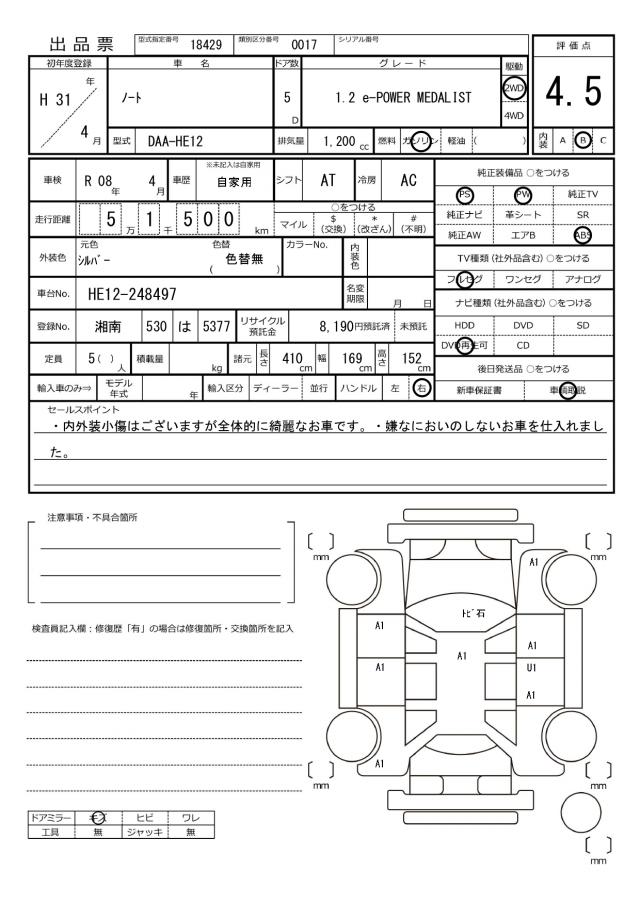 出品票
型式指定番号 18429 類別区分番号 0017 シリアル番号
評価点
4.5
内装 A B C
初年度登録 車名 ドア数 グレード 駆動
H 31 年 4 月
ノート
5 D
1.2 e-POWER MEDALIST
2WD
4WD
型式 DAA-HE12 排気量 1,200 cc 燃料 ガソリン 軽油 ( )
車検 R 08 年 4 月 車歴 ※未記入は自家用 自家用 シフト AT 冷房 AC
走行距離 5 1 5 0 0 万 千 km
○をつける
マイル $(交換) *(改ざん) #(不明)
外装色 元色 シルバー 色替 ( 色替無 ) カラーNo. 内装色
車台No. HE12-248497 名変期限 月 日
登録No. 湘南 530 は 5377 リサイクル預託金 8,190円預託済 未預託
定員 5( ) 人 積載量 kg 諸元 長さ 410 cm 幅 169 cm 高さ 152 cm
輸入車のみ⇒ モデル年式 年 輸入区分 ディーラー 並行 ハンドル 左 右
純正装備品 ○をつける
PS PW 純正TV
純正ナビ 革シート SR
純正AW エアB ABS
TV種類 (社外品含む) ○をつける
フルセグ ワンセグ アナログ
ナビ種類 (社外品含む) ○をつける
HDD DVD SD
DVD再生可 CD
後日発送品 ○をつける
新車保証書 車輌取説
セールスポイント
・内外装小傷はございますが全体的に綺麗なお車です。・嫌なにおいのしないお車を仕入れまし
た。
注意事項・不具合箇所
検査員記入欄：修復歴「有」の場合は修復箇所・交換箇所を記入
ドアミラー キズ ヒビ ワレ
工具 無 ジャッキ 無
〔 〕 mm
〔 〕 mm
A1
トビ石
A1
A1
A1
A1
U1
A1
A1
〔 〕 mm
〔 〕 mm
〔 〕 mm